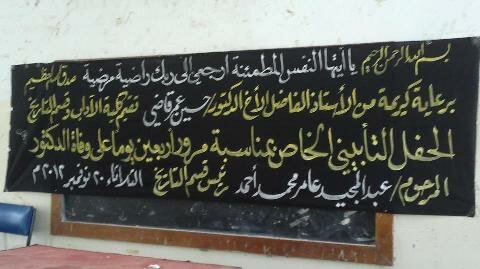 بسم الله الرحمن الرحيم يا أيتها النفس المطمئنة ارجعي إلى ربك راضية مرضية صدق الله العظيم
برعاية كريمة من الأستاذ الفاضل الأخ الدكتور/ حسين عمر قاضي تقيم كلية الآداب وقسم التاريخ
الحفل التأبيني الخاص بمناسبة مرور أربعين يوما على وفاة الدكتور
المرحوم/ عبد المجيد عامر محمد أحمد رئيس قسم التاريخ الثلاثاء ٢٠ نوفمبر ٢٠١٢م